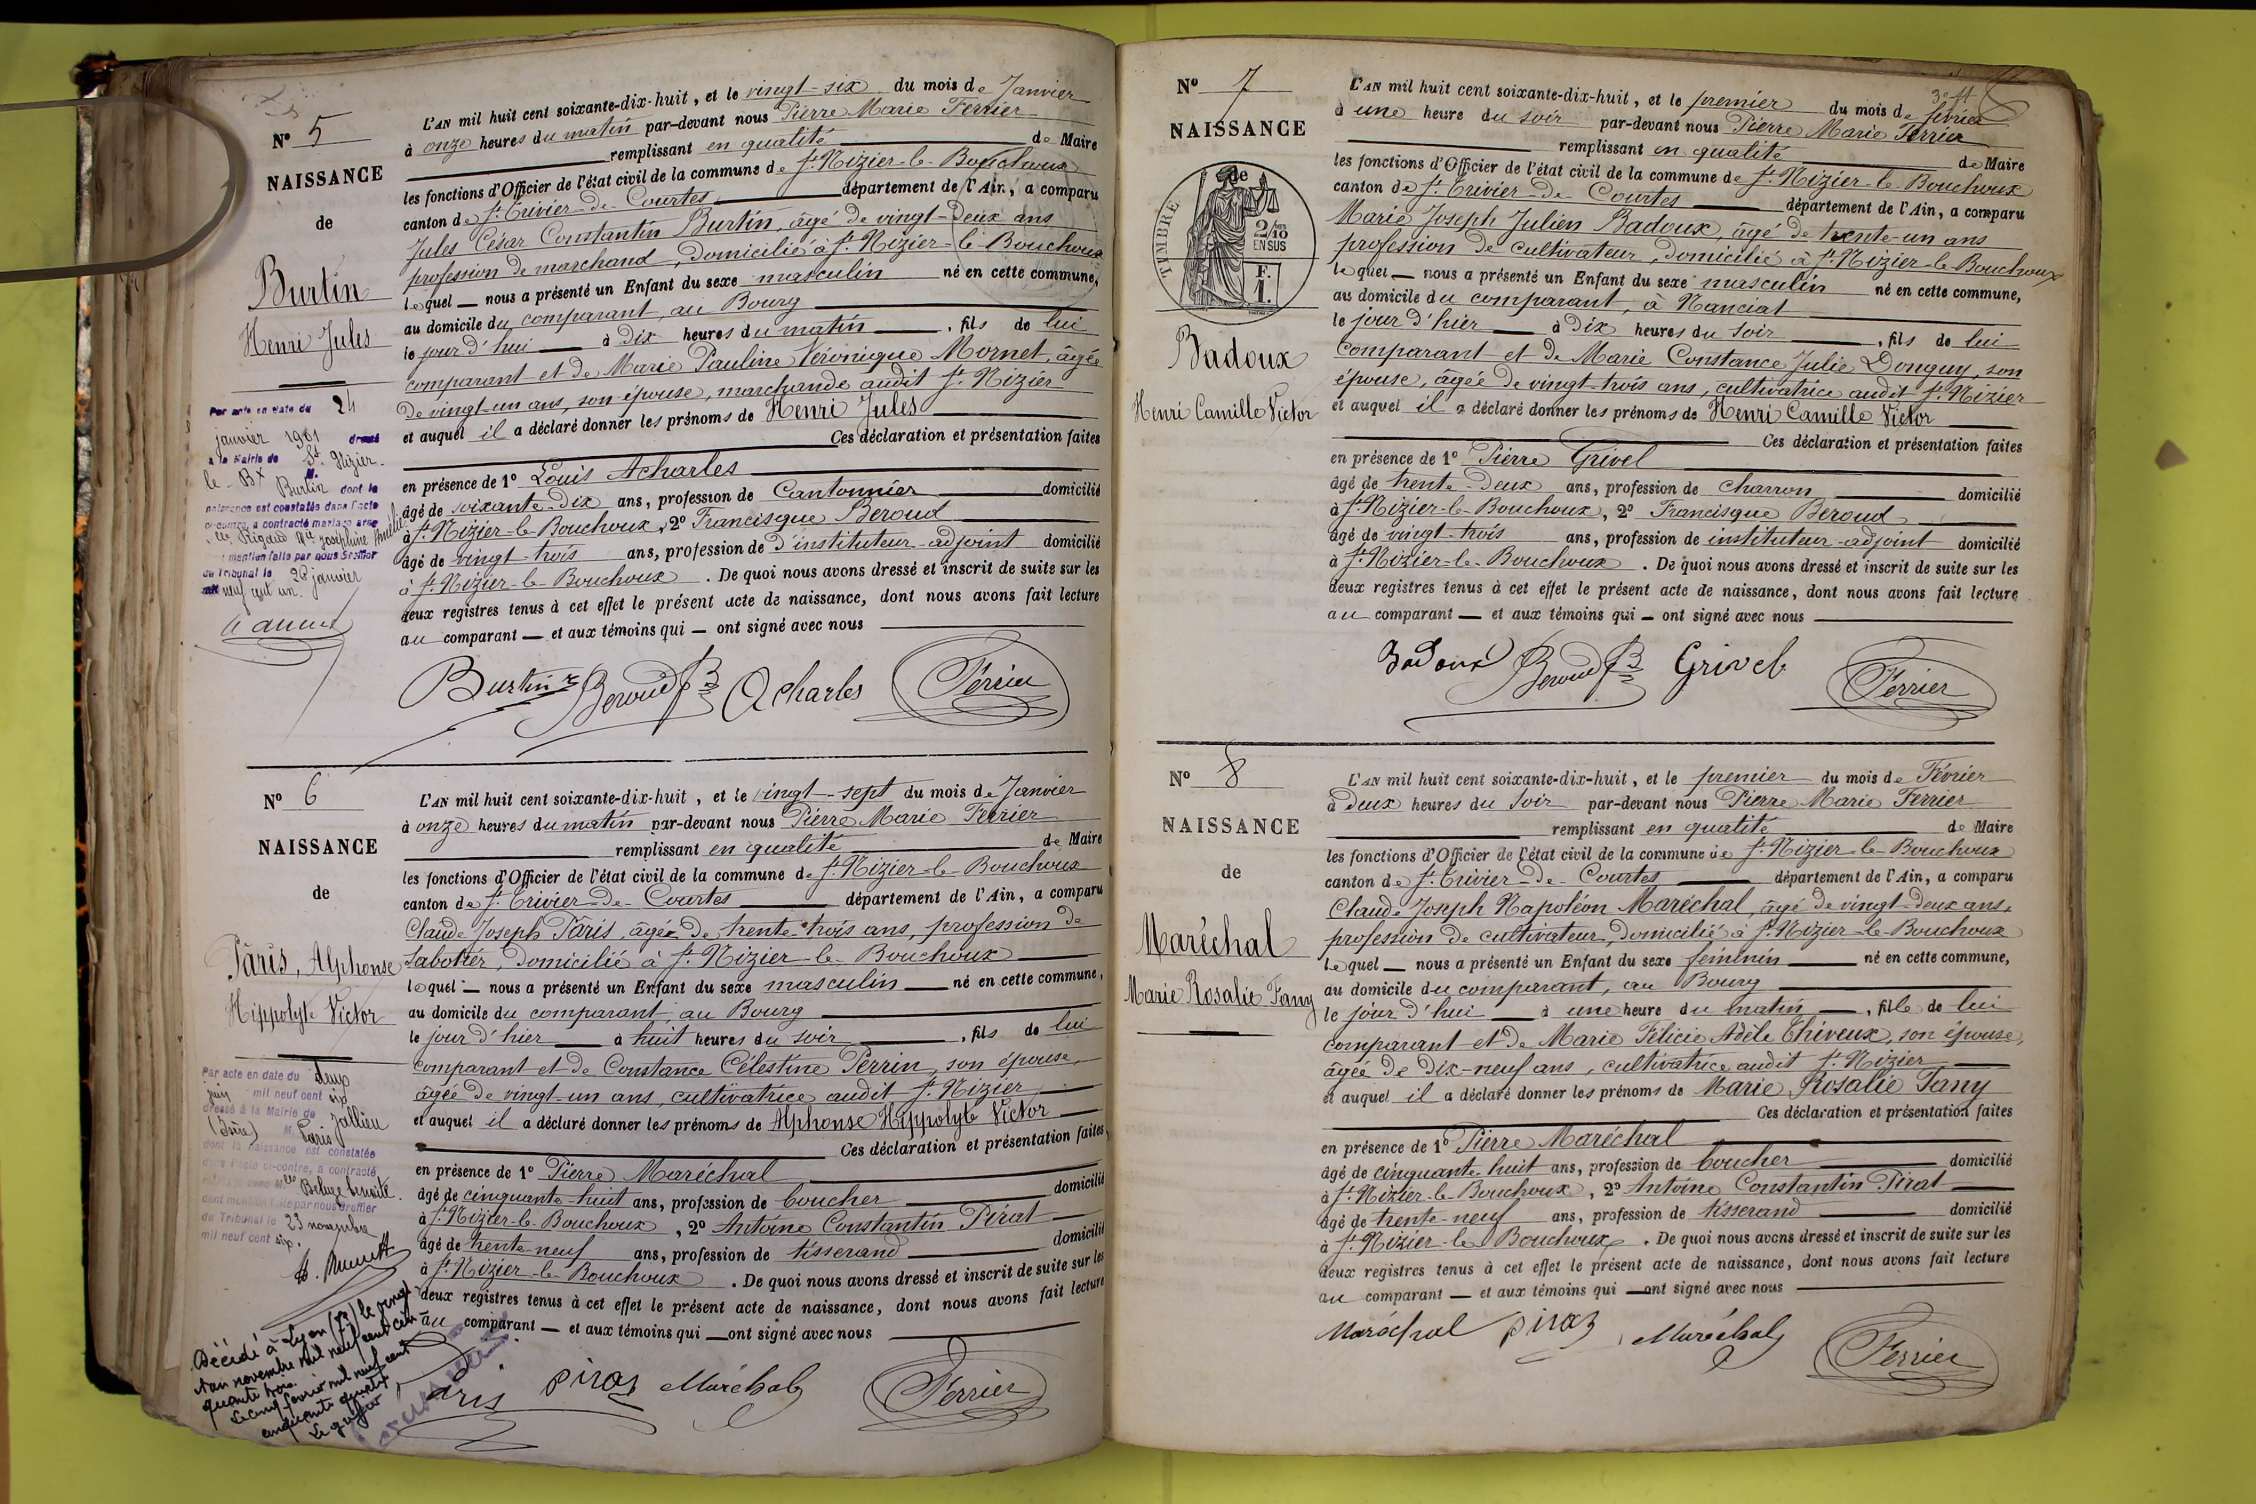 Nº 5
NAISSANCE
de
Burtin
Henri Jules
L'AN mil huit cent soixante-dix-huit, et le vingt-six du mois de Janvier
à onze heures du matin par-devant nous Pierre Marie Ferrier
remplissant en qualité de Maire
les fonctions d'Officier de l'état civil de la commune de St Nizier-le-Bouchoux
canton de St Trivier-de-Courtes département de l'Ain, a comparu
Jules César Constantin Burtin, âgé de vingt-deux ans
profession de marchand, domicilié à St Nizier-le-Bouchoux
lequel nous a présenté un Enfant du sexe masculin né en cette commune,
au domicile du comparant, au Bourg
le jour d'hui à dix heures du matin, fils de lui
comparant et de Marie Pauline Véronique Mornet, âgée
de vingt-un ans, son épouse, marchande audit St Nizier
et auquel il a déclaré donner les prénoms de Henri Jules
Ces déclaration et présentation faites
en présence de 1º Louis Acharles
âgé de soixante-dix ans, profession de Cantonnier domicilié
à St Nizier-le-Bouchoux, 2º Francisque Beroud
âgé de vingt-trois ans, profession de d'instituteur-adjoint domicilié
à St Nizier-le-Bouchoux. De quoi nous avons dressé et inscrit de suite sur les
deux registres tenus à cet effet le présent acte de naissance, dont nous avons fait lecture
au comparant et aux témoins qui ont signé avec nous
Burtin Beroud Acharles Ferrier
Par acte en date du 24
janvier 1901 dressé
à la Mairie de St Nizier-
le-Bx M.
Burtin dont la
naissance est constatée dans l'acte
ci-contre, a contracté mariage avec
Rigaud Josephine
mention faite par nous Greffier
du Tribunal le 26 janvier
mil neuf cent un.
Nº 6
NAISSANCE
de
Pâris, Alphonse
Hippolyte Victor
L'AN mil huit cent soixante-dix-huit, et le vingt-sept du mois de Janvier
à onze heures du matin par-devant nous Pierre Marie Ferrier
remplissant en qualité de Maire
les fonctions d'Officier de l'état civil de la commune de St Nizier-le-Bouchoux
canton de St Trivier-de-Courtes département de l'Ain, a comparu
Claude Joseph Pâris, âgé de trente-trois ans, profession de
sabotier, domicilié à St Nizier-le-Bouchoux
lequel nous a présenté un Enfant du sexe masculin né en cette commune,
au domicile du comparant au Bourg
le jour d'hier à huit heures du soir, fils de lui
comparant et de Constance Célestine Perrin, son épouse,
âgée de vingt-un ans, cultivatrice audit St Nizier
et auquel il a déclaré donner les prénoms de Alphonse Hippolyte Victor
Ces déclaration et présentation faites,
en présence de 1º Pierre Maréchal
âgé de cinquante-huit ans, profession de boucher domicilié
à St Nizier-le-Bouchoux, 2º Antoine Constantin Pirat
âgé de trente-neuf ans, profession de tisserand domicilié
à St Nizier-le-Bouchoux. De quoi nous avons dressé et inscrit de suite sur les
deux registres tenus à cet effet le présent acte de naissance, dont nous avons fait lecture
au comparant et aux témoins qui ont signé avec nous
Paris Pirat Maréchal Ferrier
Par acte en date du deux
juin mil neuf cent six
dressé à la Mairie de Jallieu
(Isère) M. Paris
dont la naissance est constatée
dans l'acte ci-contre, a contracté
Beluze benoite.
dont mention faite par nous Greffier
du Tribunal le 23 novembre
mil neuf cent six.
Décédé à Lyon le vingt
et un novembre mil neuf cent cin
quante trois.
Le cinq février mil neuf cent
cinquante quatre
Le greffier
Nº 7
NAISSANCE
de
TIMBRE
2/10
EN SUS
F.
1.
Badoux
Henri Camille Victor
L'AN mil huit cent soixante-dix-huit, et le premier du mois de février
à une heure du soir par-devant nous Pierre Marie Ferrier
remplissant en qualité de Maire
les fonctions d'Officier de l'état civil de la commune de St Nizier-le-Bouchoux
canton de St Trivier-de-Courtes département de l'Ain, a comparu
Marie Joseph Julien Badoux, âgé de trente-un ans
profession de cultivateur, domicilié à St Nizier-le-Bouchoux
lequel nous a présenté un Enfant du sexe masculin né en cette commune,
au domicile du comparant, à Nanciat
le jour d'hier à dix heures du soir, fils de lui
comparant et de Marie Constance Julie Donguy, son
épouse, âgée de vingt-trois ans, cultivatrice audit St Nizier
et auquel il a déclaré donner les prénoms de Henri Camille Victor
Ces déclaration et présentation faites
en présence de 1º Pierre Grivel
âgé de trente-deux ans, profession de charron domicilié
à St Nizier-le-Bouchoux, 2º Francisque Beroud
âgé de vingt-trois ans, profession de instituteur-adjoint domicilié
à St Nizier-le-Bouchoux. De quoi nous avons dressé et inscrit de suite sur les
deux registres tenus à cet effet le présent acte de naissance, dont nous avons fait lecture
au comparant et aux témoins qui ont signé avec nous
Badoux Beroud Grivel Ferrier
Nº 8
NAISSANCE
de
Maréchal
Marie Rosalie Fany
L'AN mil huit cent soixante-dix-huit, et le premier du mois de Février
à deux heures du soir par-devant nous Pierre Marie Ferrier
remplissant en qualité de Maire
les fonctions d'Officier de l'état civil de la commune de St Nizier-le-Bouchoux
canton de St Trivier-de-Courtes département de l'Ain, a comparu
Claude Joseph Napoléon Maréchal, âgé de vingt-deux ans,
profession de cultivateur, domicilié à St Nizier-le-Bouchoux
lequel nous a présenté un Enfant du sexe féminin né en cette commune,
au domicile du comparant, au Bourg
le jour d'hui à une heure du matin, fille de lui
comparant et de Marie Félicie Adèle Thiveux, son épouse,
âgée de dix-neuf ans, cultivatrice audit St Nizier
et auquel il a déclaré donner les prénoms de Marie Rosalie Fany
Ces déclaration et présentation faites
en présence de 1º Pierre Maréchal
âgé de cinquante-huit ans, profession de boucher domicilié
à St Nizier-le-Bouchoux, 2º Antoine Constantin Pirat
âgé de trente-neuf ans, profession de tisserand domicilié
à St Nizier-le-Bouchoux. De quoi nous avons dressé et inscrit de suite sur les
deux registres tenus à cet effet le présent acte de naissance, dont nous avons fait lecture
au comparant et aux témoins qui ont signé avec nous
Maréchal Pirat Maréchal Ferrier